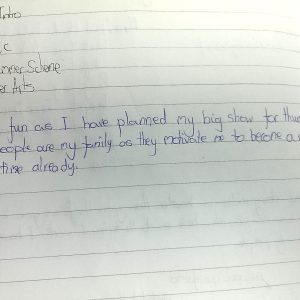 Intro
C
Scheme
Arts
fun as I have planned my big show for
people are my family as they motivate me to become a
time already.